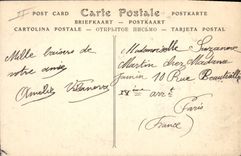 POST CARD Carte Postale POSTKARTE
BRIEFKAART POSTKAART
CARTOLINA POSTALE ОТКРЫТОЕ ПИСЬМО TARJETA POSTAL
Mille baisers de
votre amie
Amelie
Mademoiselle Suzanne
Martin chez Madame
10 Rue
arrt
Paris
(France)